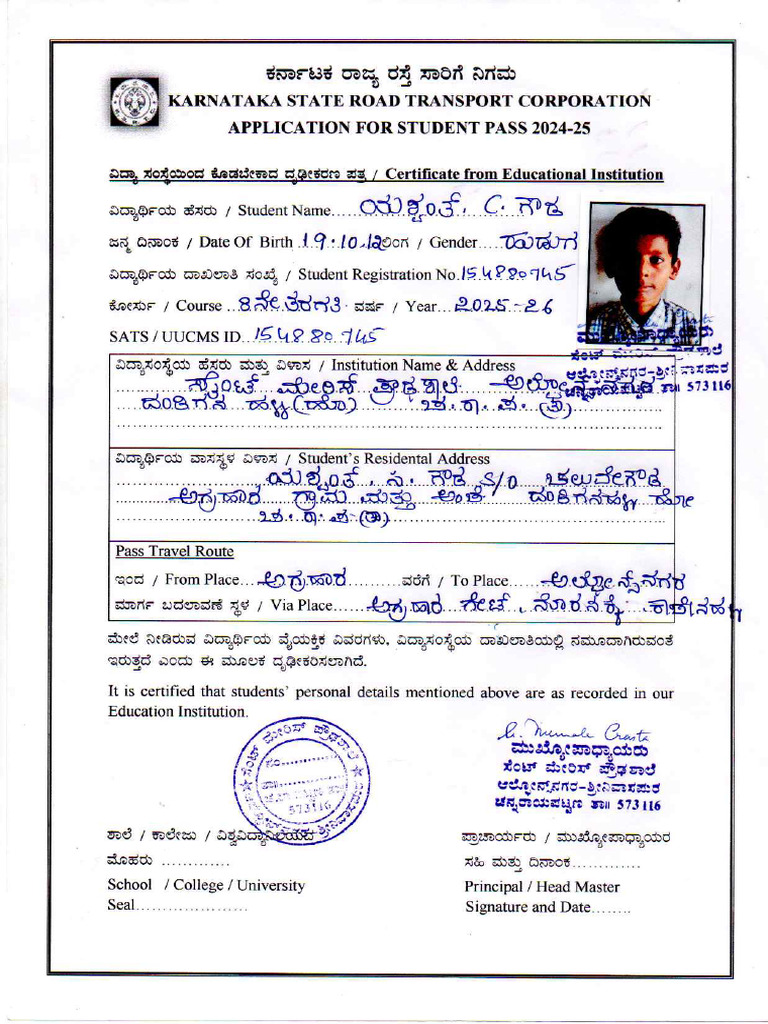 ಕರ್ನಾಟಕ ರಾಜ್ಯ ರಸ್ತೆ ಸಾರಿಗೆ ನಿಗಮ
KARNATAKA STATE ROAD TRANSPORT CORPORATION
APPLICATION FOR STUDENT PASS 2024-25
ವಿದ್ಯಾ ಸಂಸ್ಥೆಯಿಂದ ಕೊಡಬೇಕಾದ ದೃಢೀಕರಣ ಪತ್ರ / Certificate from Educational Institution
ವಿದ್ಯಾರ್ಥಿಯ ಹೆಸರು / Student Name.....ಯಶ್ವಂತ್. C. ಗೌಡ
ಜನ್ಮ ದಿನಾಂಕ / Date Of Birth 19.10.12 ಲಿಂಗ / Gender....ಹುಡುಗ
ವಿದ್ಯಾರ್ಥಿಯ ದಾಖಲಾತಿ ಸಂಖ್ಯೆ / Student Registration No.154880745
ಕೋರ್ಸು / Course ..8ನೇ ತರಗತಿ. ವರ್ಷ / Year....2025-26
SATS / UUCMS ID...154880745
ವಿದ್ಯಾಸಂಸ್ಥೆಯ ಹೆಸರು ಮತ್ತು ವಿಳಾಸ / Institution Name & Address
ಸೈಂಟ್ ಮೇರಿಸ್ ಪ್ರೌಢಶಾಲೆ
ದಂಡಿಗನ ಹಳ್ಳಿ (ಹೋ) ಚ.ರಾ.ಪ.(ತಾ)
ಮುಖ್ಯೋಪಾಧ್ಯಾಯರು
ಸೆಂಟ್ ಮೇರಿಸ್ ಪ್ರೌಢಶಾಲೆ
ಆಲ್ಫೋನ್ಸ್‌ನಗರ-ಶ್ರೀನಿವಾಸಪುರ
ಚನ್ನರಾಯಪಟ್ಟಣ ತಾ॥ 573116
ವಿದ್ಯಾರ್ಥಿಯ ವಾಸಸ್ಥಳ ವಿಳಾಸ / Student's Residental Address
ಯಶ್ವಂತ್. ಸಿ. ಗೌಡ S/O ಚಲುವೇಗೌಡ
ಅಗ್ರಹಾರ ಗ್ರಾಮ ಮತ್ತು ಅಂಚೆ ದಂಡಿಗನಹಳ್ಳಿ ಹೋ
ಚ.ರಾ.ಪ.(ತಾ)
Pass Travel Route
ಇಂದ / From Place...ಅಗ್ರಹಾರ ವರೆಗೆ / To Place...ಅಲ್ಫೋನ್ಸ್ ನಗರ
ಮಾರ್ಗ ಬದಲಾವಣೆ ಸ್ಥಳ / Via Place....ಅಗ್ರಹಾರ ಗೇಟ್,
ಮೇಲೆ ನೀಡಿರುವ ವಿದ್ಯಾರ್ಥಿಯ ವೈಯಕ್ತಿಕ ವಿವರಗಳು, ವಿದ್ಯಾಸಂಸ್ಥೆಯ ದಾಖಲಾತಿಯಲ್ಲಿ ನಮೂದಾಗಿರುವಂತೆ
ಇರುತ್ತದೆ ಎಂದು ಈ ಮೂಲಕ ದೃಢೀಕರಿಸಲಾಗಿದೆ.
It is certified that students' personal details mentioned above are as recorded in our
Education Institution.
ಸೆಂಟ್ ಮೇರಿಸ್ ಪ್ರೌಢಶಾಲೆ
573116
ಮುಖ್ಯೋಪಾಧ್ಯಾಯರು
ಸೆಂಟ್ ಮೇರಿಸ್ ಪ್ರೌಢಶಾಲೆ
ಆಲ್ಫೋನ್ಸ್‌ನಗರ-ಶ್ರೀನಿವಾಸಪುರ
ಚನ್ನರಾಯಪಟ್ಟಣ ತಾ॥ 573116
ಶಾಲೆ / ಕಾಲೇಜು / ವಿಶ್ವವಿದ್ಯಾನಿಲಯದ
ಮೊಹರು .............
School / College / University
Seal.....................
ಪ್ರಾಚಾರ್ಯರು / ಮುಖ್ಯೋಪಾಧ್ಯಾಯರ
ಸಹಿ ಮತ್ತು ದಿನಾಂಕ.............
Principal / Head Master
Signature and Date........